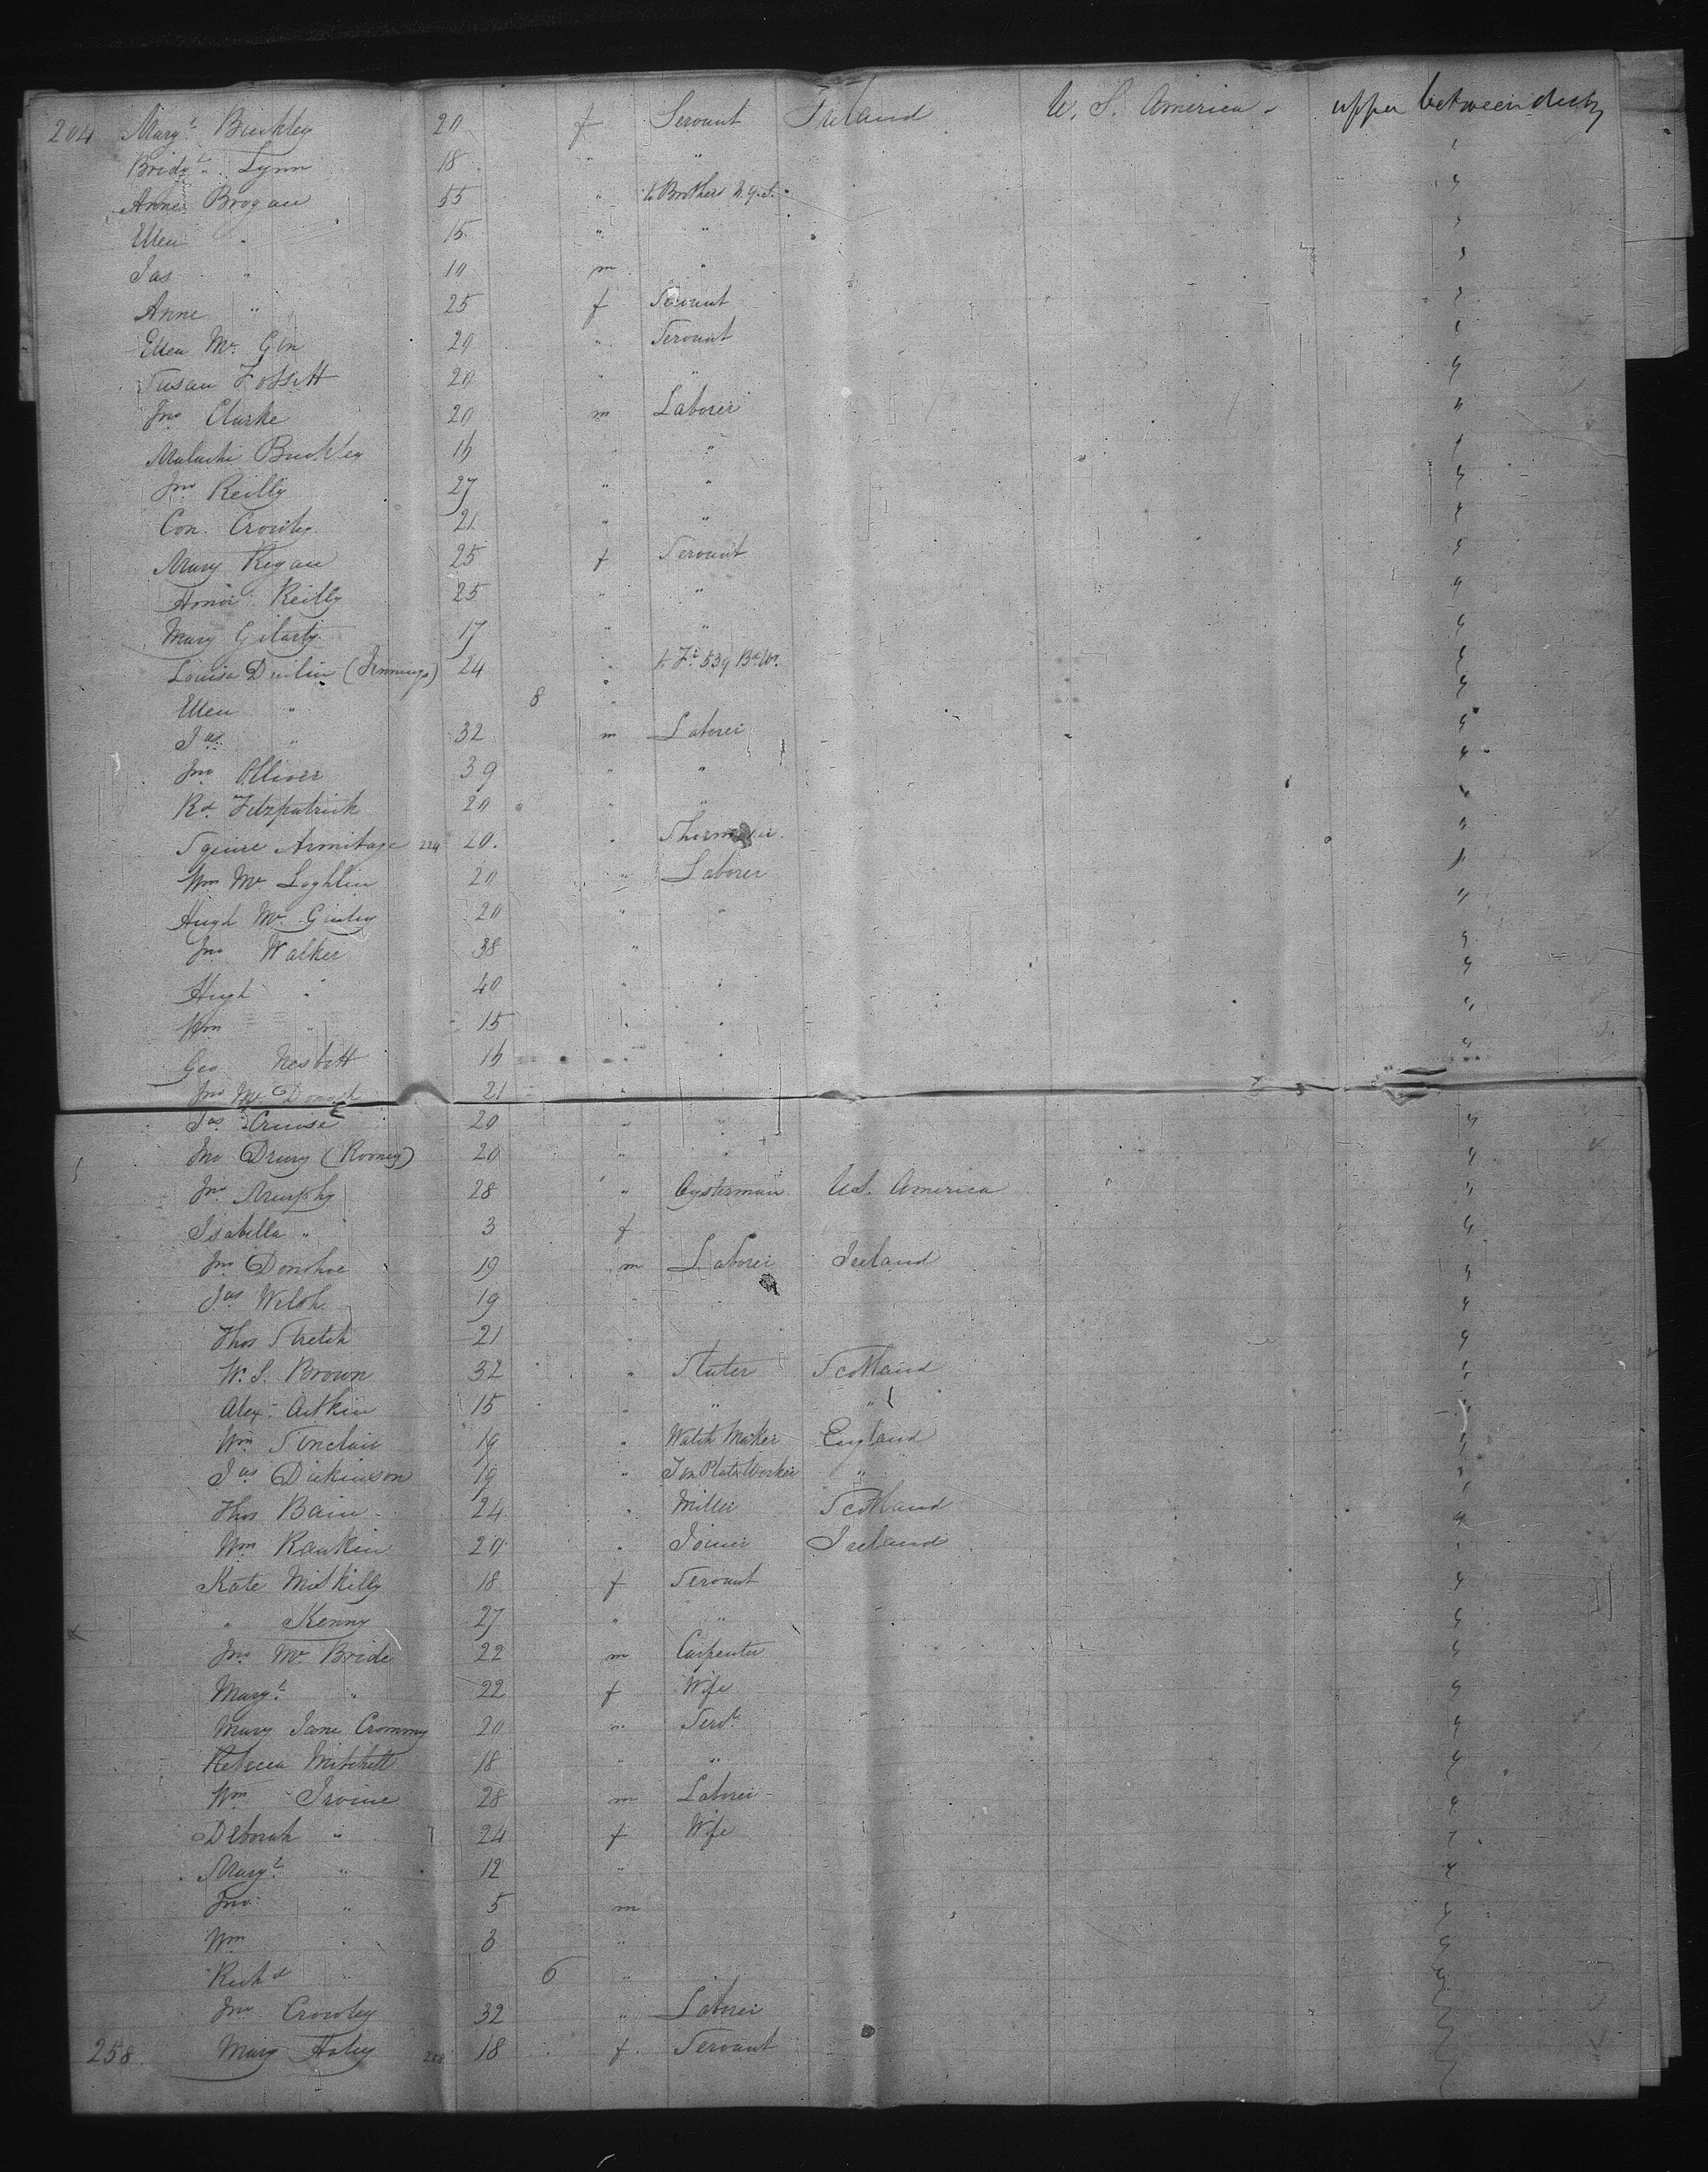 204 Margt Buckley 20 f Servant Ireland U. S. America upper between decks
Bridgt Lynn 18 " "
Anne Brogan 55 " to Brothers "
Ellen " 15 " " "
Jas " 10 m " "
Anne " 25 f Servant "
Ellen Mc Gin 20 " Servant "
Susan Fossitt 20 " " "
Jno Clarke 20 m Laborer "
Malachi Buckley 16 " " "
Jno Reilly 27 " " "
Con. Crowly 21 " " "
Mary Regan 25 f Servant "
Honor Reilly 25 " " "
Mary Gilarty 17 " " "
Louisa Devlin (Jennings) 24 " "
Ellen " 8 " "
Jas " 32 m Laborer "
Jno Olliver 39 " " "
Rd Fitzpatrick 20 " " "
Squire Armitage 224 20 " "
Wm Mc Loghlin 20 " Laborer "
Hugh Mc Ginley 20 " " "
Jno Walker 38 " "
Hugh " 40 " " "
Wm " 15 " " "
Geo Nesbitt 16 " " "
Jno Mc 21 "
Jas Cruise 20 " " "
Jno Drury (Rooney) 20 " " "
Jno Murphy 28 " Oysterman U.S. America "
Isabella " 3 f "
Jno Donohoe 19 m Laborer Ireland "
Jas Welsh 19 " "
Thos Stretch 21 " "
W. S. Brown 32 " Slater Scotland "
Alex. Aitkin 15 " " " "
Wm Sinclair 19 " Watch Maker England "
Jas Dickinson 19 " Tin Plate Worker " "
Thos Bain 24 " Miller Scotland "
Wm Rankin 20 " Joiner Ireland "
Kate 18 f Servant "
" Kenny 27 " " "
Jno Mc Bride 22 m Carpenter "
Margt " 22 f Wife "
Mary Jane Crommy 20 " Servt "
Rebecca Mitchell 18 " " "
Wm Irvine 28 m Laborer "
Deborah " 24 f Wife "
Margt " 12 " "
Jno " 5 m "
Wm " 3 " "
Richd " 6 " "
Jno Crowley 32 " Laborer "
258 Mary Haley 258 18 f Servant "